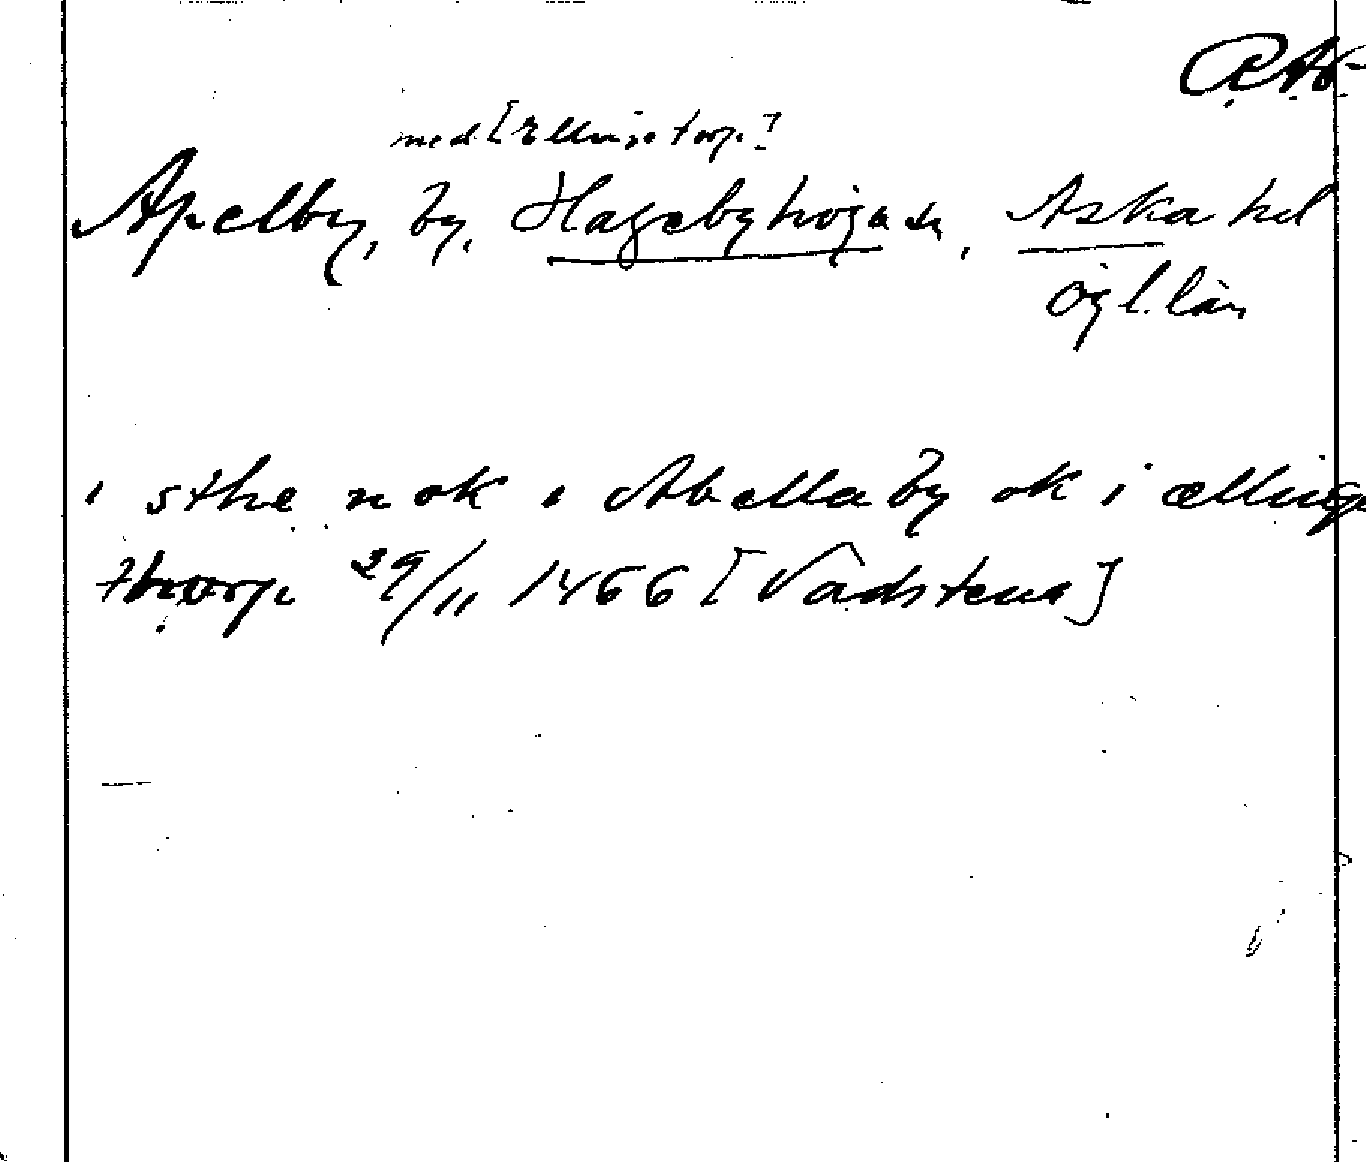 RAP
med [Ellingetorp?]
Apelby, by, Hagebyhöga sn, Aska hd
Ögl. län
i sthe n ok i Abellaby ok i ællinge
thorp 29/11 1466 [Vadstena]